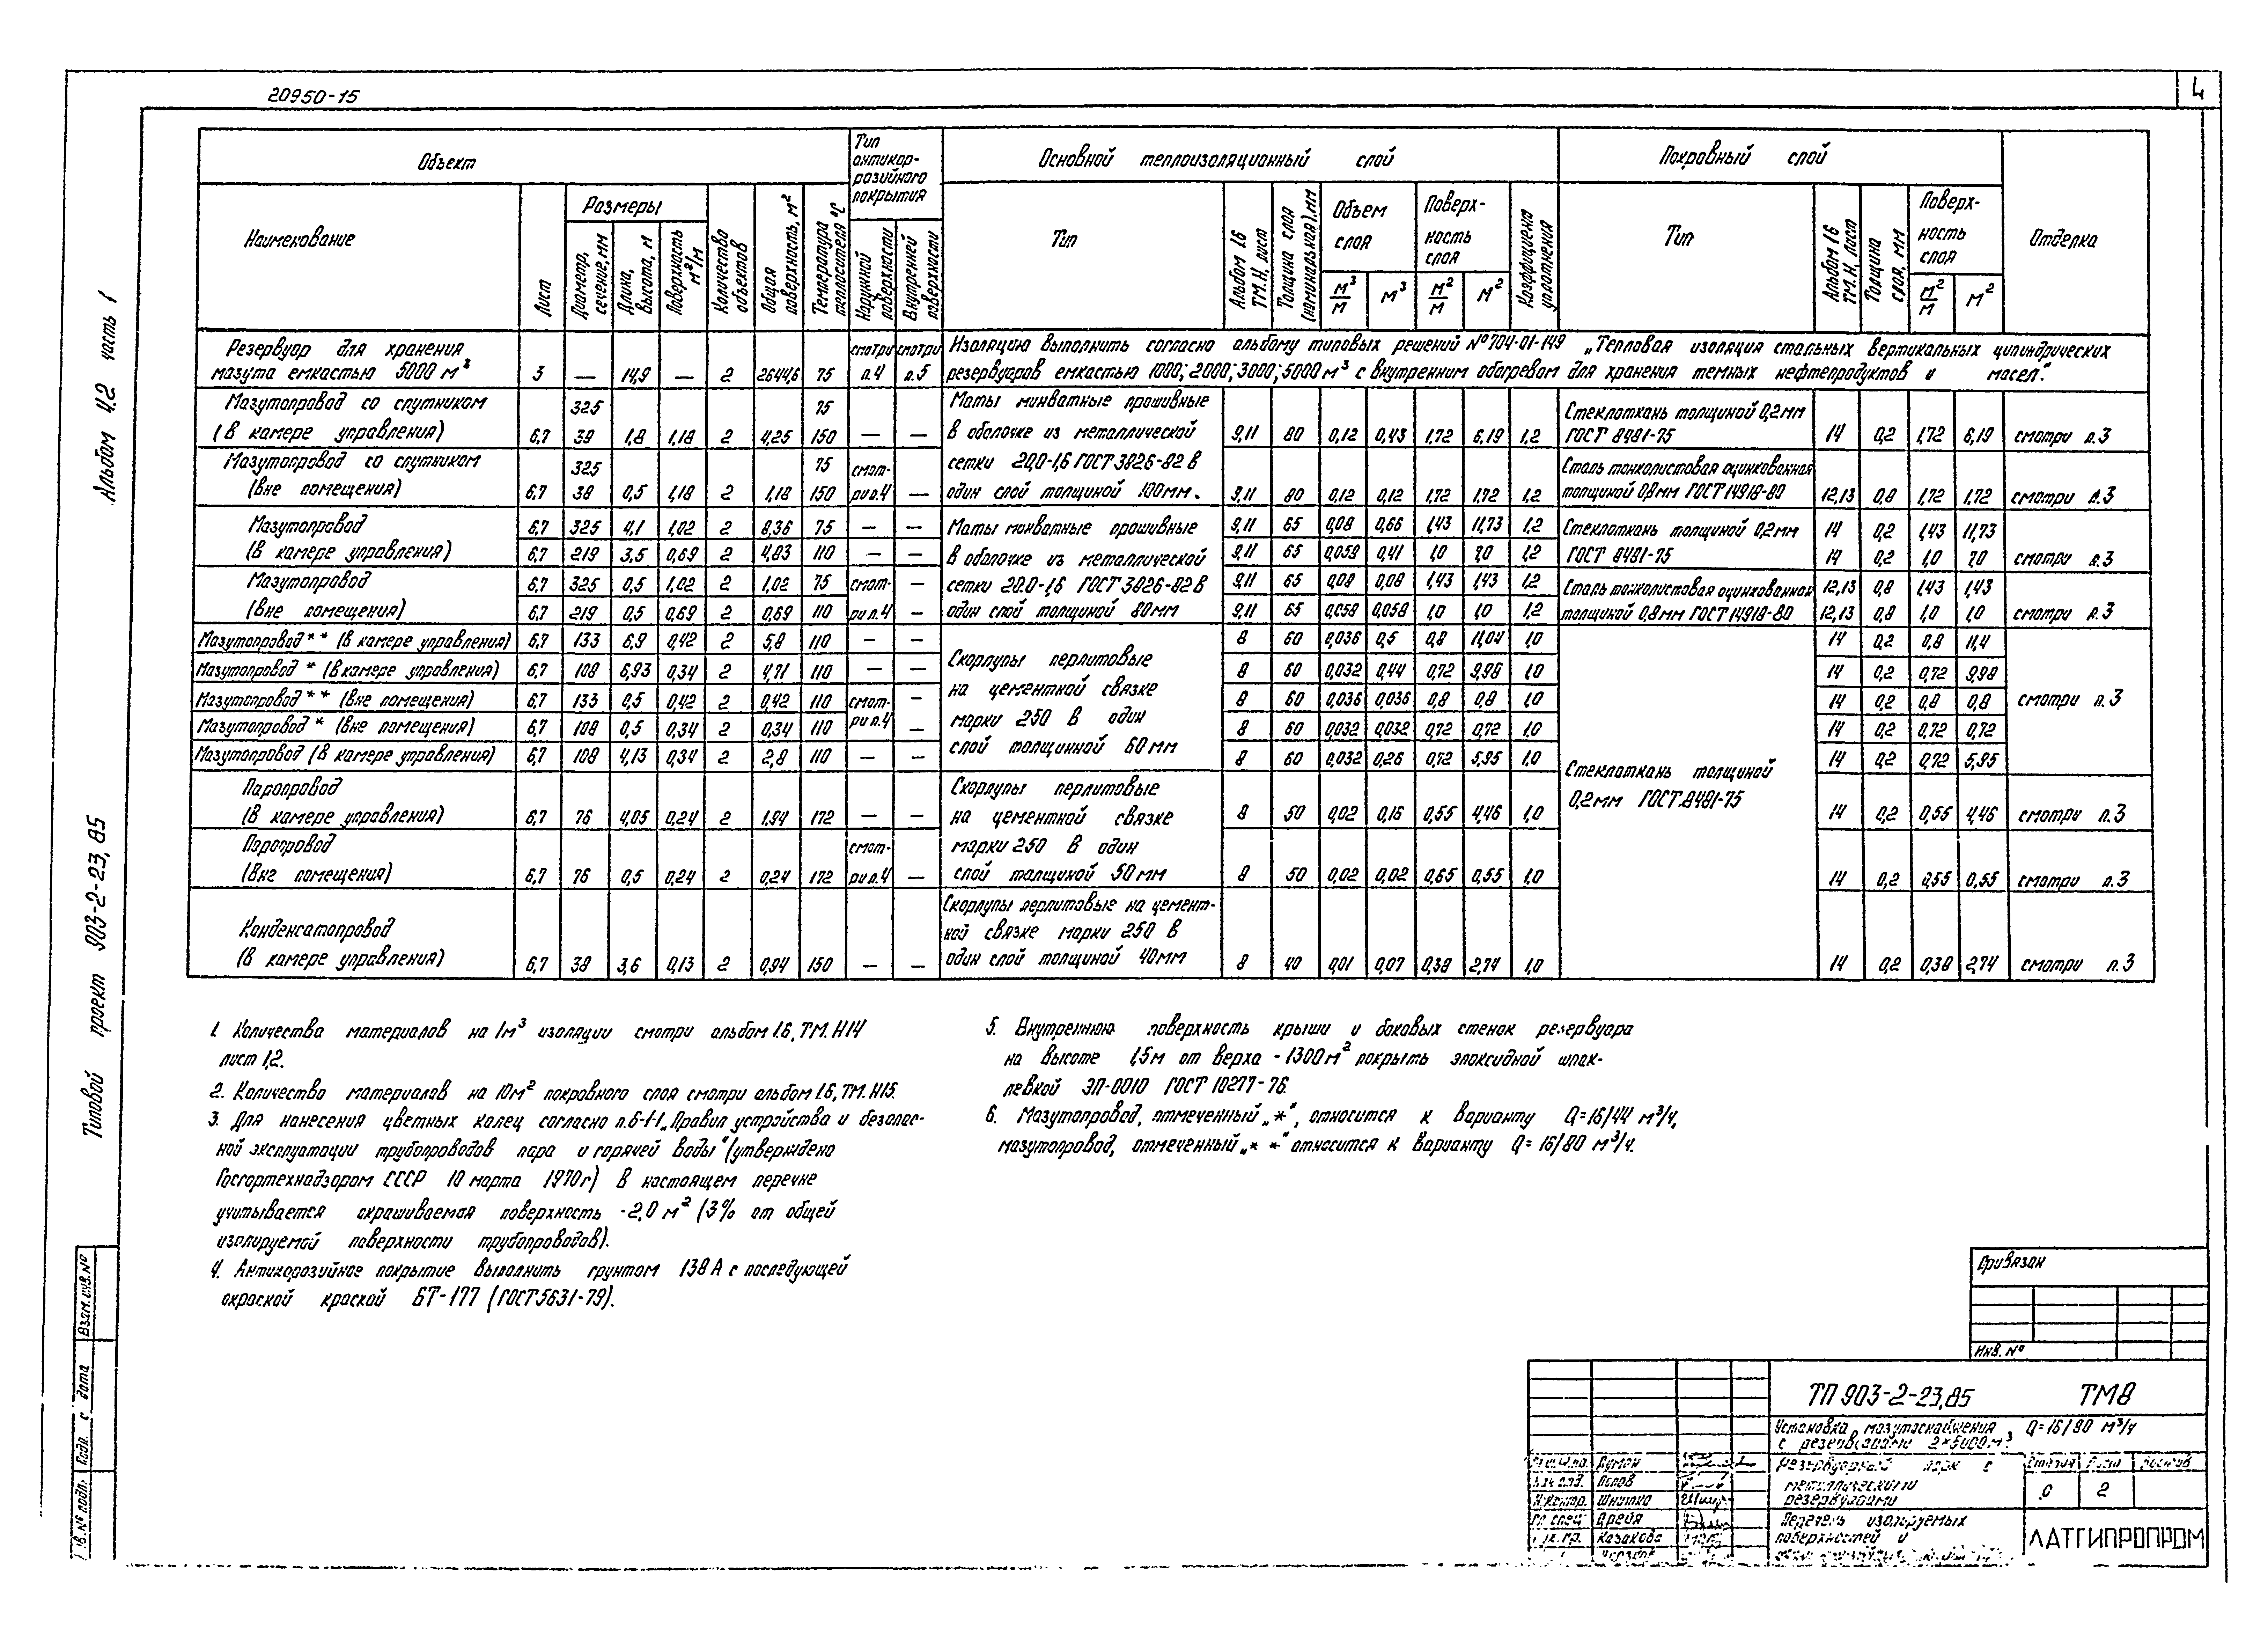 20950-15
4
Альбом 4.2 часть 1
Типовой проект 903-2-23,85
Объект
Тип антикор-розийного покрытия
Основной теплоизоляционный слой
Покровный слой
Отделка
Наименование
Лист
Размеры
Диаметр, сечение, мм
Длина, высота, м
Поверхность м²/м
Количество объектов
Общая поверхность, м²
Температура теплоносителя °С
Наружной поверхности
Внутренней поверхности
Тип
Альбом 1.6 ТМ.Н, лист
Толщина слоя (номинальная), мм
Объем слоя
м³/м
м³
Поверх-ность слоя
м²/м
м²
Коэффициент уплотнения
Тип
Альбом 1.6 ТМ.Н, лист
Толщина слоя, мм
Поверх-ность слоя
м²/м
м²
Резервуар для хранения мазута емкостью 5000 м³ 3 — 14,9 — 2 2644,6 75 смотри п.4 смотри п.5
Изоляцию выполнить согласно альбому типовых решений №704-01-149 „Тепловая изоляция стальных вертикальных цилиндрических
резервуаров емкостью 1000; 2000; 3000; 5000 м³ с внутренним обогревом для хранения темных нефтепродуктов и масел".
Мазутопровод со спутником 325 75
(в камере управления) 6,7 38 1,8 1,18 2 4,25 150 — — 9,11 80 0,12 0,43 1,72 6,19 1,2 Стеклоткань толщиной 0,2мм ГОСТ 8481-75 14 0,2 1,72 6,19 смотри п.3
Маты минватные прошивные
в оболочке из металлической
сетки 20.0-1,6 ГОСТ 3826-82 в
один слой толщиной 100мм.
Мазутопровод со спутником 325 75
(вне помещения) 6,7 38 0,5 1,18 2 1,18 150 смот-ри п.4 — 9,11 80 0,12 0,12 1,72 1,72 1,2 Сталь тонколистовая оцинкованная толщиной 0,8мм ГОСТ 14918-80 12,13 0,8 1,72 1,72 смотри п.3
Мазутопровод 6,7 325 4,1 1,02 2 8,36 75 — — 9,11 65 0,08 0,66 1,43 11,73 1,2 Стеклоткань толщиной 0,2мм 14 0,2 1,43 11,73
(в камере управления) 6,7 219 3,5 0,69 2 4,83 110 — — 9,11 65 0,058 0,41 1,0 7,0 1,2 ГОСТ 8481-75 14 0,2 1,0 7,0 смотри п.3
Маты минватные прошивные
в оболочке из металлической
сетки 20.0-1,6 ГОСТ 3826-82 в
один слой толщиной 80мм
Мазутопровод 6,7 325 0,5 1,02 2 1,02 75 смот- — 9,11 65 0,08 0,08 1,43 1,43 1,2 Сталь тонколистовая оцинкованная 12,13 0,8 1,43 1,43
(вне помещения) 6,7 219 0,5 0,69 2 0,69 110 ри п.4 — 9,11 65 0,058 0,058 1,0 1,0 1,2 толщиной 0,8мм ГОСТ 14918-80 12,13 0,8 1,0 1,0 смотри п.3
Мазутопровод ** (в камере управления) 6,7 133 6,9 0,42 2 5,8 110 — — 8 60 0,036 0,5 0,8 11,04 1,0 14 0,2 0,8 11,4
Мазутопровод * (в камере управления) 6,7 108 6,93 0,34 2 4,71 110 — — 8 60 0,032 0,44 0,72 9,98 1,0 14 0,2 0,72 9,98
Мазутопровод ** (вне помещения) 6,7 133 0,5 0,42 2 0,42 110 смот- — 8 60 0,036 0,036 0,8 0,8 1,0 14 0,2 0,8 0,8 смотри п.3
Мазутопровод * (вне помещения) 6,7 108 0,5 0,34 2 0,34 110 ри п.4 — 8 60 0,032 0,032 0,72 0,72 1,0 14 0,2 0,72 0,72
Мазутопровод (в камере управления) 6,7 108 4,13 0,34 2 2,8 110 — — 8 60 0,032 0,26 0,72 5,95 1,0 14 0,2 0,72 5,95
Скорлупы перлитовые
на цементной связке
марки 250 в один
слой толщинной 60мм
Стеклоткань толщиной
0,2мм ГОСТ.8481-75
Паропровод
(в камере управления) 6,7 76 4,05 0,24 2 1,94 172 — — 8 50 0,02 0,16 0,55 4,46 1,0 14 0,2 0,55 4,46 смотри п.3
Скорлупы перлитовые
на цементной связке
марки 250 в один
слой толщиной 50мм
Паропровод
(вне помещения) 6,7 76 0,5 0,24 2 0,24 172 смот-ри п.4 — 8 50 0,02 0,02 0,65 0,55 1,0 14 0,2 0,55 0,55 смотри п.3
Конденсатопровод
(в камере управления) 6,7 38 3,6 0,13 2 0,94 150 — — 8 40 0,01 0,07 0,38 2,74 1,0 14 0,2 0,38 2,74 смотри п.3
Скорлупы перлитовые на цемент-
ной связке марки 250 в
один слой толщиной 40мм
1. Количества материалов на 1м³ изоляции смотри альбом 1.6, ТМ.Н14
лист 1,2.
2. Количество материалов на 10м² покровного слоя смотри альбом 1.6, ТМ.Н15.
3. Для нанесения цветных колец согласно п.6-1-1 „Правил устройства и безопас-
ной эксплуатации трубопроводов пара и горячей воды" (утверждено
Госгортехнадзором СССР 10 марта 1970г) в настоящем перечне
учитывается окрашиваемая поверхность -2,0 м² (3% от общей
изолируемой поверхности трубопроводов).
4. Антикорозийное покрытие выполнить грунтом 138 А с последующей
окраской краской БТ-177 (ГОСТ 5631-79).
5. Внутреннюю поверхность крыши и боковых стенок резервуара
на высоте 1,5м от верха -1300 м² покрыть эпоксидной шпак-
левкой ЭП-0010 ГОСТ 10277-76.
6. Мазутопровод, отмеченный „*", относится к варианту Q=16/44 м³/ч,
мазутопровод, отмеченный „**" относится к варианту Q= 16/80 м³/ч.
Привязан
Инв. №
ТП 903-2-23,85 ТМ8
Установка мазутоснабжения Q=16/80 м³/ч
с резервуарами 2×5000м³.
Резервуарный парк с
металлическими
резервуарами
Стадия Лист Листов
Р 2
Перечень изолируемых
поверхностей и
ЛАТГИПРОПРОМ
Попов
Н.контр. Шнитко
Гл.спец Дрейя
Казакова
Взам. инв. №
Подп. и дата
Инв. № подл.